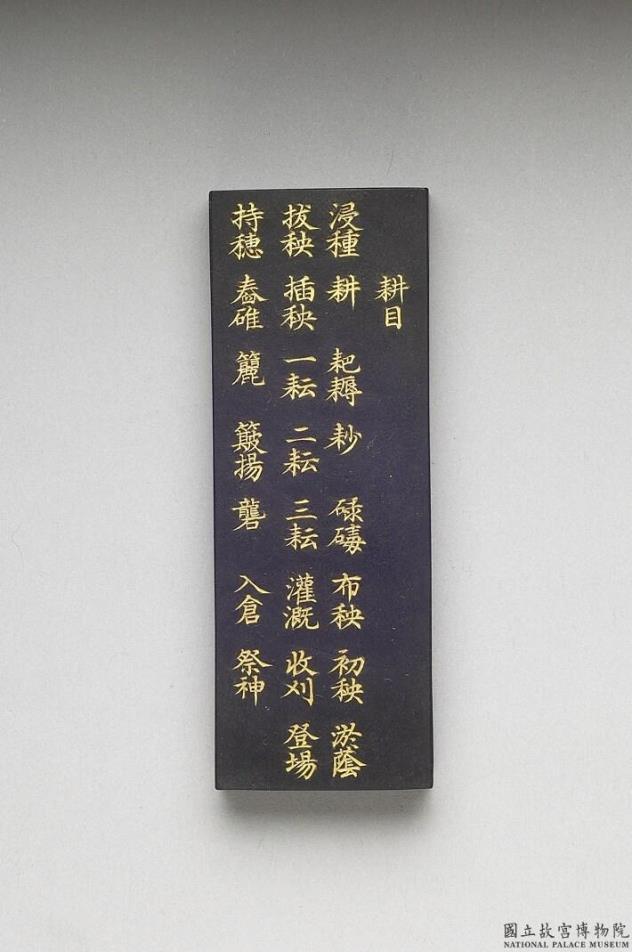 耕目
浸種 耕 耙耨 耖 碌碡 布秧 初秧 淤蔭
拔秧 插秧 一耘 二耘 三耘 灌溉 收刈 登場
持穗 舂碓 簏 簸揚 礱 入倉 祭神
國立故宮博物院
NATIONAL PALACE MUSEUM